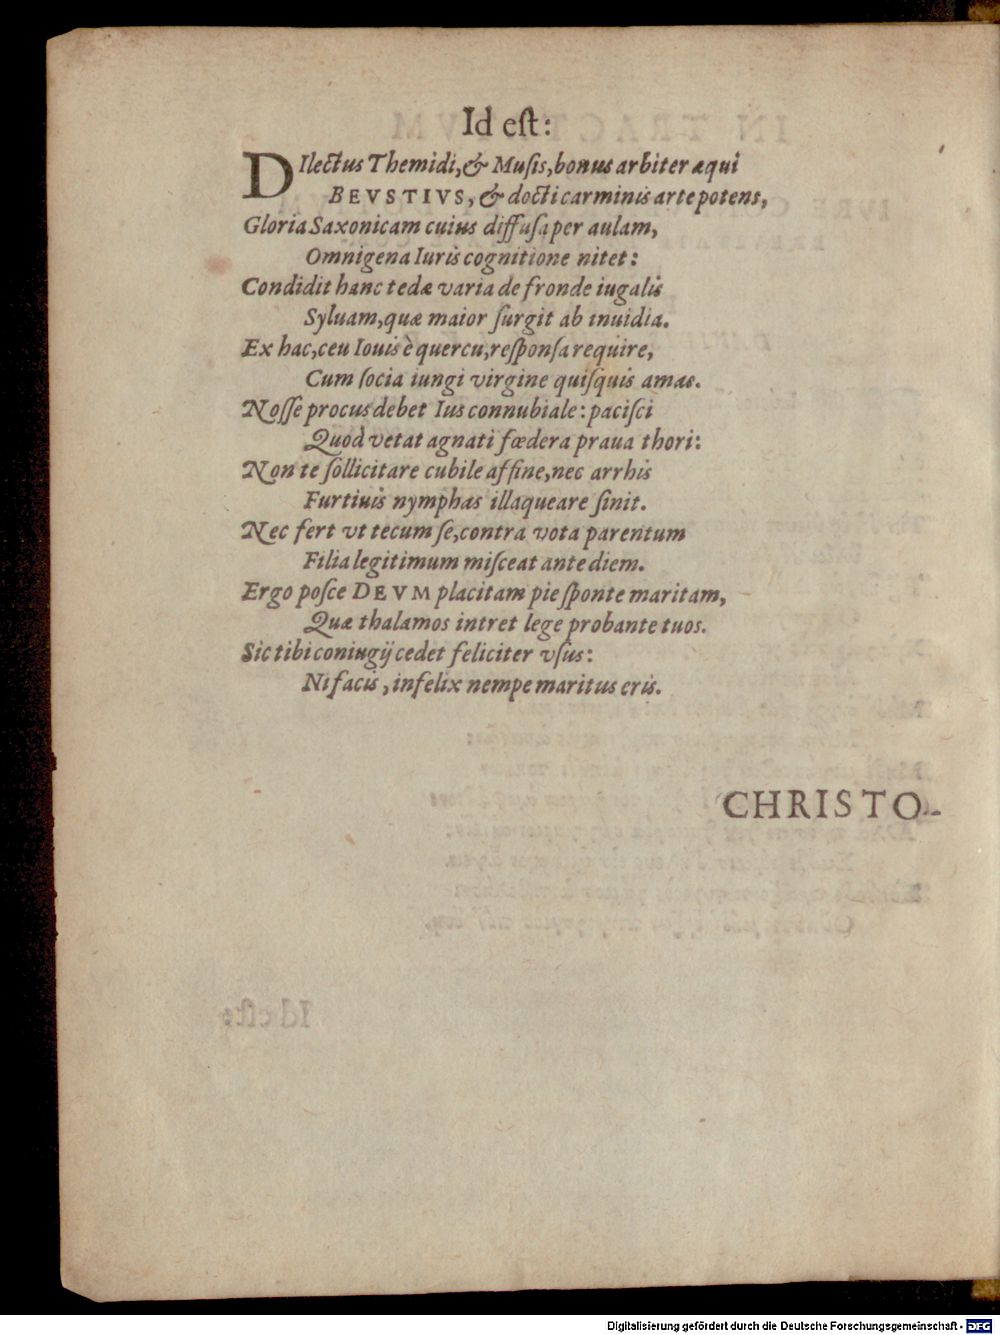 Id eſt:
DIlectus Themidi, & Muſis, bonus arbiter æqui
BEVSTIVS, & docti carminis arte potens,
Gloria Saxonicam cuius diffuſa per aulam,
Omnigena Iuris cognitione nitet:
Condidit hanc tedæ varia de fronde iugalis
Syluam, quæ maior ſurgit ab inuidia.
Ex hac, ceu Iouis è quercu, reſponſa require,
Cum ſocia iungi virgine quiſquis amas.
Noſſe procus debet Ius connubiale: paciſci
Quod vetat agnati fœdera praua thori:
Non te ſollicitare cubile affine, nec arrhis
Furtiuis nymphas illaqueare ſinit.
Nec fert vt tecum ſe, contra vota parentum
Filia legitimum miſceat ante diem.
Ergo poſce DEVM placitam pie ſponte maritam,
Quæ thalamos intret lege probante tuos.
Sic tibi coniugij cedet feliciter vſus:
Ni facis, infelix nempe maritus eris.
CHRISTO-
Digitalisierung gefördert durch die Deutsche Forschungsgemeinschaft - DFG